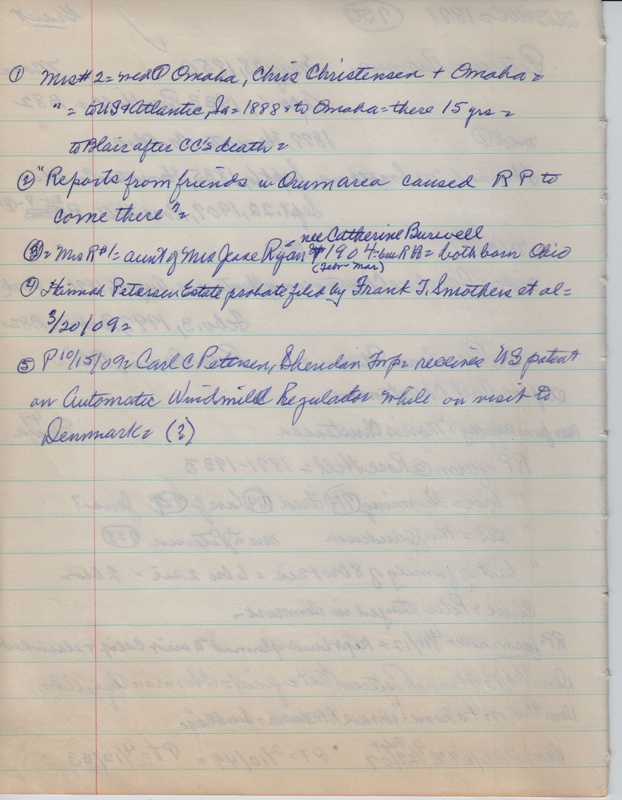 ① Mrs # 2 = med @ Omaha, Chris Christensen + Omaha =
" = to US + Atlantic, Ia = 1888 + to Omaha = there 15 yrs =
to Blair after CC's death =
② "Reports from friends in Orum area caused R P to
come there" =
nee Catherine Burwell
③ = Mrs R #1 = aunt of Mrs Jesse Ryan 1904 = RB = both born Ohio
(Feb - Mar)
④ Hannah Petersen Estate probate filed by Frank T. Smothers et al =
3/20/09 =
⑤ P 10/15/09 = Carl C Petersen, Sheridan Twp = receives US patent
on Automatic Windmill Regulator while on visit to
Denmark = (?)